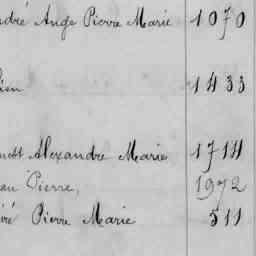 dré Ange Pierre Marie 1070
1433
Alexandre Marie 1714
Pierre, 1972
Pierre Marie 511